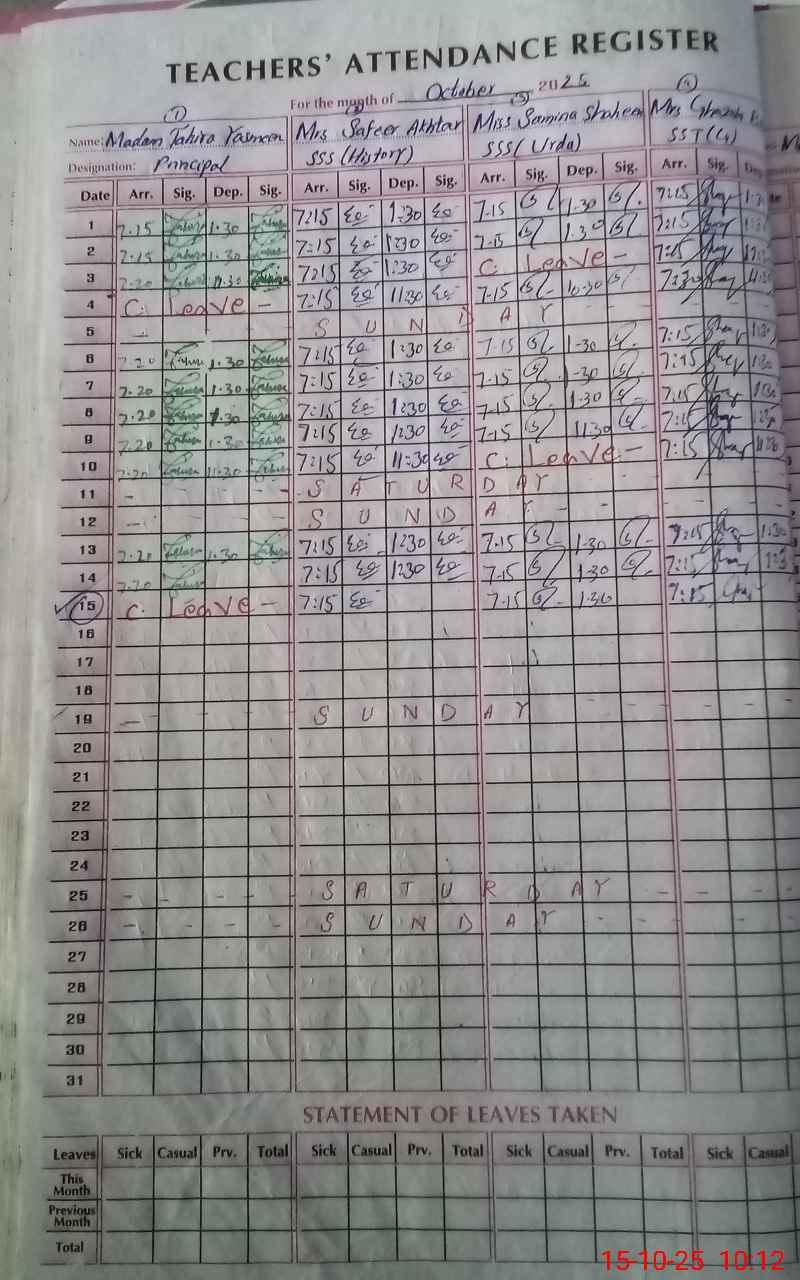 TEACHERS' ATTENDANCE REGISTER
For the month of October 2025
(1) (2) (3) (4)
Name: Madam Tahira Yasmeen Mrs Safeer Akhtar Miss Samina Shaheen Mrs
Designation: Principal SSS (History) SSS (Urdu) SST (G)
Date Arr. Sig. Dep. Sig. Arr. Sig. Dep. Sig. Arr. Sig. Dep. Sig. Arr. Sig.
1 7.15 1.30 7:15 1:30 7-15 1-30 7:15
2 7.15 1.30 7:15 1:30 7-15 1.30 7:15
3 7.20 11.30 7:15 1:30 C. Leave - 7:15
4 C. Leave - 7:15 11:30 7-15 10-30
5 - S U N D A Y - -
6 7.20 1.30 7:15 1:30 7-15 1-30 7:15 1:30
7 7.20 1.30 7:15 1:30 7-15 1-30 7:15 1:30
8 7.20 1.30 7:15 1:30 7-15 1-30 7:15 1:30
9 7.20 1.30 7:15 1:30 7-15 11:30 7:15
10 7.20 11.30 7:15 11:30 C. Leave - 7:15
11 - - - - S A T U R D A Y - -
12 - - S U N D A Y - - -
13 7.20 1.30 7:15 1:30 7-15 1-30 7:15 1:30
14 7.20 7:15 1:30 7-15 1-30 7:15
15 C. Leave - 7:15 7-15 1-30 7:15
16
17
18
19 - - - - S U N D A Y - - - -
20
21
22
23
24
25 - - - - S A T U R D A Y - - -
26 - - - - S U N D A Y - - -
27
28
29
30
31
STATEMENT OF LEAVES TAKEN
Leaves Sick Casual Prv. Total Sick Casual Prv. Total Sick Casual Prv. Total Sick Casual
This Month
Previous Month
Total
15-10-25 10:12